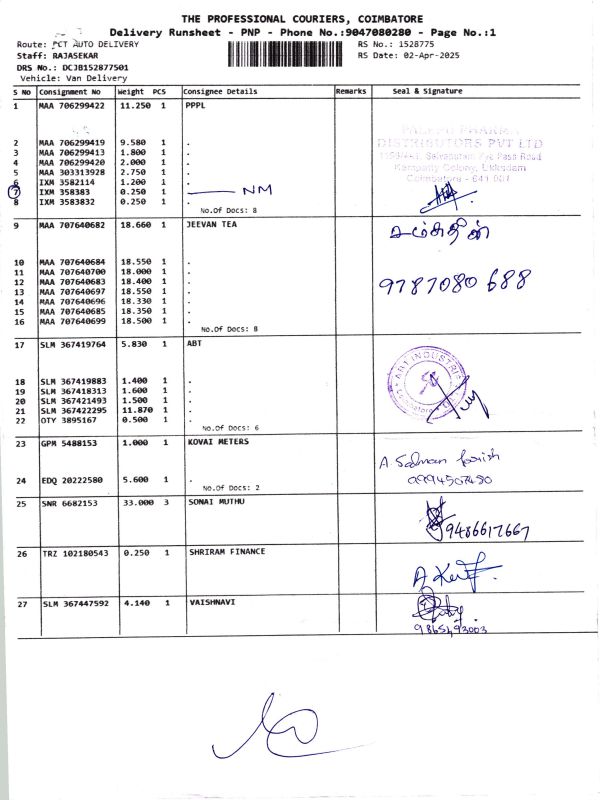 THE PROFESSIONAL COURIERS, COIMBATORE
Delivery Runsheet - PNP - Phone No.:9047080280 - Page No.:1
Route: PCT AUTO DELIVERY RS No.: 1528775
Staff: RAJASEKAR RS Date: 02-Apr-2025
DRS No.: DCJB152877501
Vehicle: Van Delivery
S No Consignment No Weight PCS Consignee Details Remarks Seal & Signature
1 MAA 706299422 11.250 1 PPPL
2 MAA 706299419 9.580 1 .
3 MAA 706299413 1.800 1 .
4 MAA 706299420 2.000 1 .
5 MAA 303313928 2.750 1 .
6 IXM 3582114 1.200 1 .
7 IXM 358383 0.250 1 . NM
8 IXM 3583832 0.250 1 .
No.Of Docs: 8
PHARMA
DISTRIBUTORS PVT LTD
Colony, Ukkadam
Coimbatore - 641 001
9 MAA 707640682 18.660 1 JEEVAN TEA
10 MAA 707640684 18.550 1 .
11 MAA 707640700 18.000 1 .
12 MAA 707640683 18.400 1 .
13 MAA 707640697 18.550 1 .
14 MAA 707640696 18.330 1 .
15 MAA 707640685 18.350 1 .
16 MAA 707640699 18.500 1 .
No.Of Docs: 8
9787080 688
17 SLM 367419764 5.830 1 ABT
18 SLM 367419883 1.400 1 .
19 SLM 367418313 1.600 1 .
20 SLM 367421493 1.500 1 .
21 SLM 367422295 11.870 1 .
22 OTY 3895167 0.500 1 .
No.Of Docs: 6
ABT INDUSTRI
23 GPM 5488153 1.000 1 KOVAI METERS
24 EDQ 20222580 5.600 1 .
No.Of Docs: 2
A. Salman
9994507450
25 SNR 6682153 33.000 3 SONAI MUTHU
9486617667
26 TRZ 102180543 0.250 1 SHRIRAM FINANCE
27 SLM 367447592 4.140 1 VAISHNAVI
9865493003